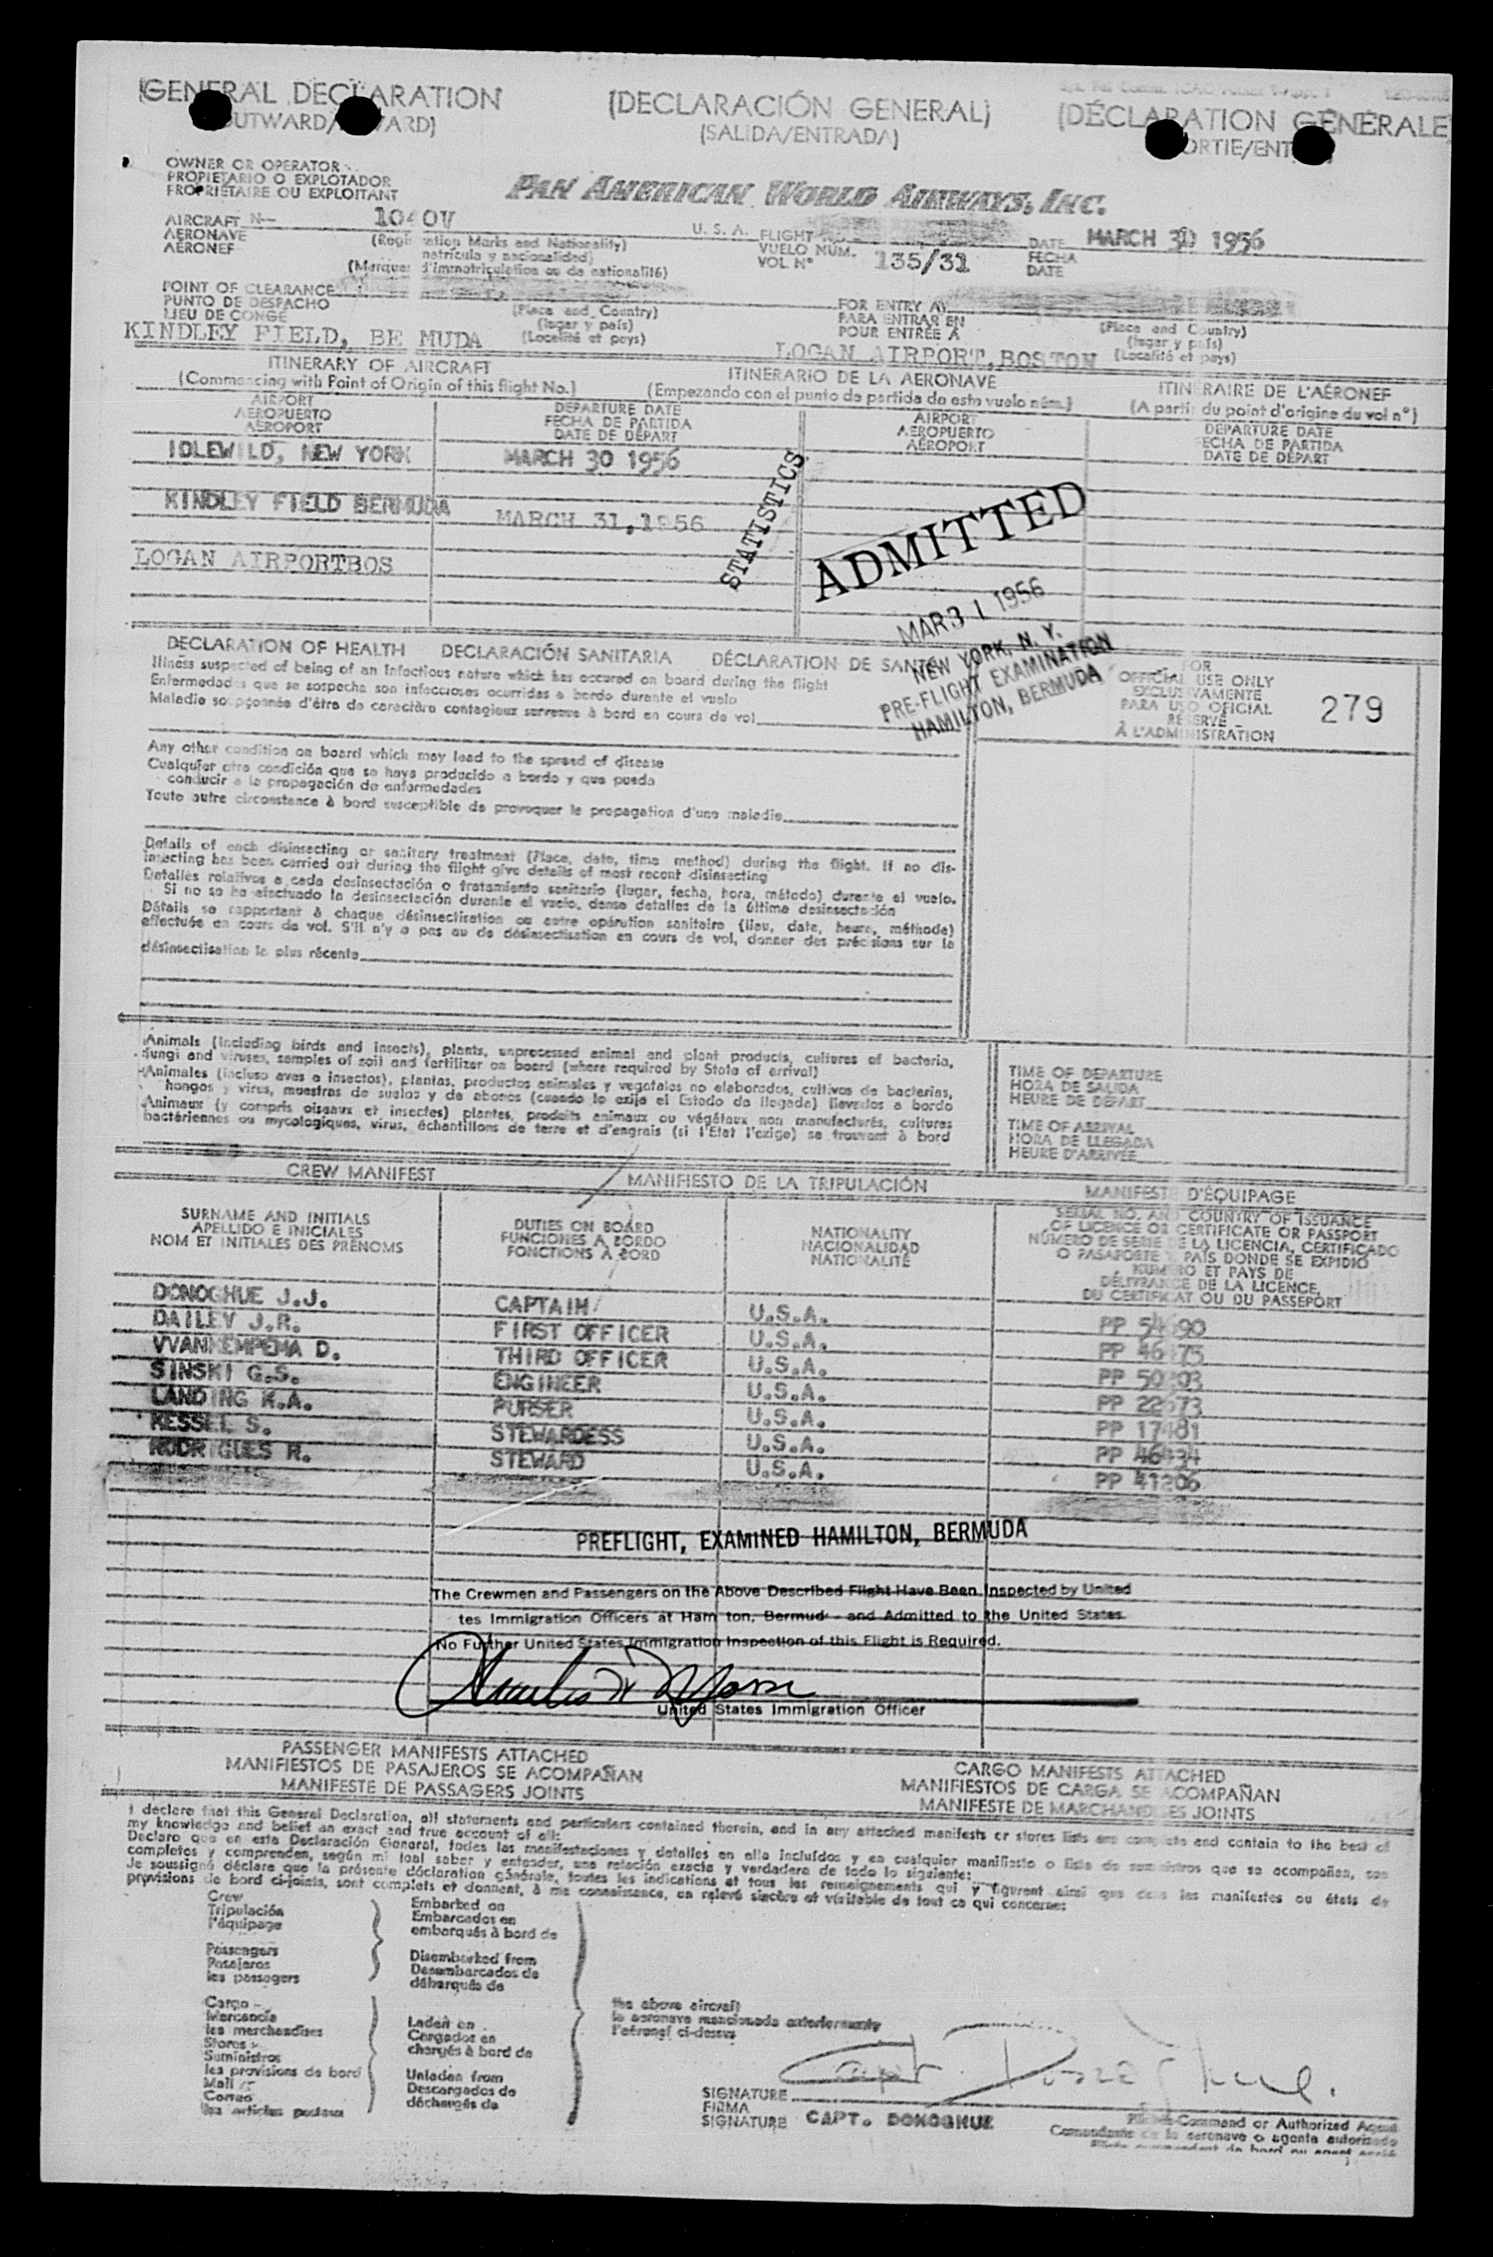 GENERAL DECLARATION
(DECLARACIÓN GENERAL)
(DÉCLARATION GÉNÉRALE
(SALIDA/ENTRADA)
OWNER OR OPERATOR
PROPIETARIO O EXPLOTADOR
PROPRIÉTAIRE OU EXPLOITANT
PAN AMERICAN WORLD AIRWAYS, INC.
AIRCRAFT N—
AERONAVE
AÉRONEF
U. S. A.
FLIGHT
VUELO NÚM.
VOL N° 135/31
DATE MARCH 30 1956
FECHA
DATE
(Marques d'immatriculation ou de nationalité)
POINT OF CLEARANCE
PUNTO DE DESPACHO
LIEU DE CONGÉ
(Place and Country)
(lugar y país)
(Localité et pays)
KINDLEY FIELD, BE MUDA
FOR ENTRY AT
PARA ENTRAR EN
POUR ENTRÉE A
(Place and Country)
(lugar y país)
(Localité et pays)
LOGAN AIRPORT, BOSTON
ITINERARY OF AIRCRAFT
(Commencing with Point of Origin of this flight No.)
ITINERARIO DE LA AERONAVE
(Empezando con el punto de partida de este vuelo núm.)
ITINERAIRE DE L'AÉRONEF
(A partir du point d'origine du vol n°)
AIRPORT
AEROPUERTO
AÉROPORT
DEPARTURE DATE
FECHA DE PARTIDA
DATE DE DÉPART
AIRPORT
AEROPUERTO
AÉROPORT
DEPARTURE DATE
FECHA DE PARTIDA
DATE DE DÉPART
IDLEWILD, NEW YORK
MARCH 30 1956
KINDLEY FIELD BERMUDA
MARCH 31, 1956
LOGAN AIRPORTBOS
STATISTICS
ADMITTED
MAR 31 1956
NEW YORK, N. Y.
PRE-FLIGHT EXAMINATION
HAMILTON, BERMUDA
DECLARATION OF HEALTH DECLARACIÓN SANITARIA DÉCLARATION DE SANTÉ
Illness suspected of being of an infectious nature which has occured on board during the flight
Enfermedades que se sospecha son infecciosas ocurridas a bordo durante el vuelo
Maladie soupçonnée d'être de caractère contagieux survenue à bord en cours de vol
FOR
OFFICIAL USE ONLY
EXCLUSIVAMENTE
PARA USO OFICIAL
RÉSERVÉ
À L'ADMINISTRATION
279
Any other condition on board which may lead to the spread of disease
Cualquier otra condición que se haya producido a bordo y que pueda
conducir a la propagación de enfermedades
Toute autre circonstance à bord susceptible de provoquer le propagation d'une maladie
Details of each disinsecting or sanitary treatment (Place, date, time method) during the flight. If no dis-
insecting has been carried out during the flight give details of most recent disinsecting
Detalles relativos a cada desinsectación o tratamiento sanitario (lugar, fecha, hora, método) durante el vuelo.
Si no se ha efectuado la desinsectación durante el vuelo, dense detalles de la última desinsectación
Détails se rapportant à chaque désinsectisation ou autre opération sanitaire (lieu, date, heure, méthode)
effectuée en cours de vol. S'il n'y a pas eu de désinsectisation en cours de vol, donner des précisions sur la
désinsectisation la plus récente
Animals (including birds and insects), plants, unprocessed animal and plant products, cultures of bacteria,
fungi and viruses, samples of soil and fertilizer on board (where required by State of arrival)
Animales (incluso aves e insectos), plantas, productos animales y vegetales no elaborados, cultivos de bacterias,
hongos y virus, muestras de suelos y de abonos (cuando lo exija el Estado de llegada) llevados a bordo
Animaux (y compris oiseaux et insectes) plantes, produits animaux ou végétaux non manufacturés, cultures
bactériennes ou mycologiques, virus, échantillons de terre et d'engrais (si l'Etat l'exige) se trouvant à bord
TIME OF DEPARTURE
HORA DE SALIDA
HEURE DE DÉPART
TIME OF ARRIVAL
HORA DE LLEGADA
HEURE D'ARRIVÉE
CREW MANIFEST
MANIFIESTO DE LA TRIPULACIÓN
MANIFESTE D'ÉQUIPAGE
SURNAME AND INITIALS
APELLIDO E INICIALES
NOM ET INITIALES DES PRÉNOMS
DUTIES ON BOARD
FUNCIONES A BORDO
FONCTIONS À BORD
NATIONALITY
NACIONALIDAD
NATIONALITÉ
SERIAL NO. AND COUNTRY OF ISSUANCE
OF LICENCE OR CERTIFICATE OR PASSPORT
NÚMERO DE SERIE DE LA LICENCIA, CERTIFICADO
O PASAPORTE Y PAÍS DONDE SE EXPIDIÓ
NUMÉRO ET PAYS DE
DÉLIVRANCE DE LA LICENCE,
DU CERTIFICAT OU DU PASSEPORT
DONOGHUE J.J. CAPTAIN U.S.A. PP
DAILEY J.R. FIRST OFFICER U.S.A. PP
VVANKEMPEMA D. THIRD OFFICER U.S.A. PP
SINSKI G.S. ENGINEER U.S.A. PP
LANDING K.A. PURSER U.S.A. PP
KESSEL S. STEWARDESS U.S.A. PP
RODRIGUES R. STEWARD U.S.A. PP 41206
PREFLIGHT, EXAMINED HAMILTON, BERMUDA
The Crewmen and Passengers on the Above Described Flight Have Been Inspected by United
tes Immigration Officers at Ham ton, Bermud and Admitted to the United States.
No Further United States Immigration Inspection of this Flight is Required.
United States Immigration Officer
PASSENGER MANIFESTS ATTACHED
MANIFIESTOS DE PASAJEROS SE ACOMPAÑAN
MANIFESTE DE PASSAGERS JOINTS
CARGO MANIFESTS ATTACHED
MANIFIESTOS DE CARGA SE ACOMPAÑAN
MANIFESTE DE MARCHANDISES JOINTS
I declare that this General Declaration, all statements and particulars contained therein, and in any attached manifests or stores lists are complete and contain to the best of
my knowledge and belief an exact and true account of all:
Declaro que en esta Declaración General, todas las manifestaciones y detalles en ella incluídos y en cualquier manifiesto o lista de suministros que se acompañan, son
completos y comprenden, según mi leal saber y entender, una relación exacta y verdadera de todo lo siguiente:
Je soussigné déclare que la présente déclaration générale, toutes les indications et tous les renseignements qui y figurent ainsi que dans les manifestes ou états de
provisions de bord ci-joints, sont complets et donnent, à ma connaissance, un relevé sincère et véritable de tout ce qui concerne:
Crew
Tripulación
l'équipage
Passengers
Pasajeros
les passagers
Embarked on
Embarcados en
embarqués à bord de
Disembarked from
Desembarcados de
débarqués de
Cargo
Mercancía
les merchandises
Stores
Suministros
les provisions de bord
Mail
Correo
les articles postaux
Laden on
Cargados en
chargés à bord de
Unladen from
Descargados de
déchargés de
the above aircraft
la aeronave mencionada anteriormente
l'aéronef ci-dessus
Capt Donoghue.
SIGNATURE
FIRMA
SIGNATURE CAPT. DONOGHUE
Command or Authorized Agent
Comandante de la aeronave o agente autorizado